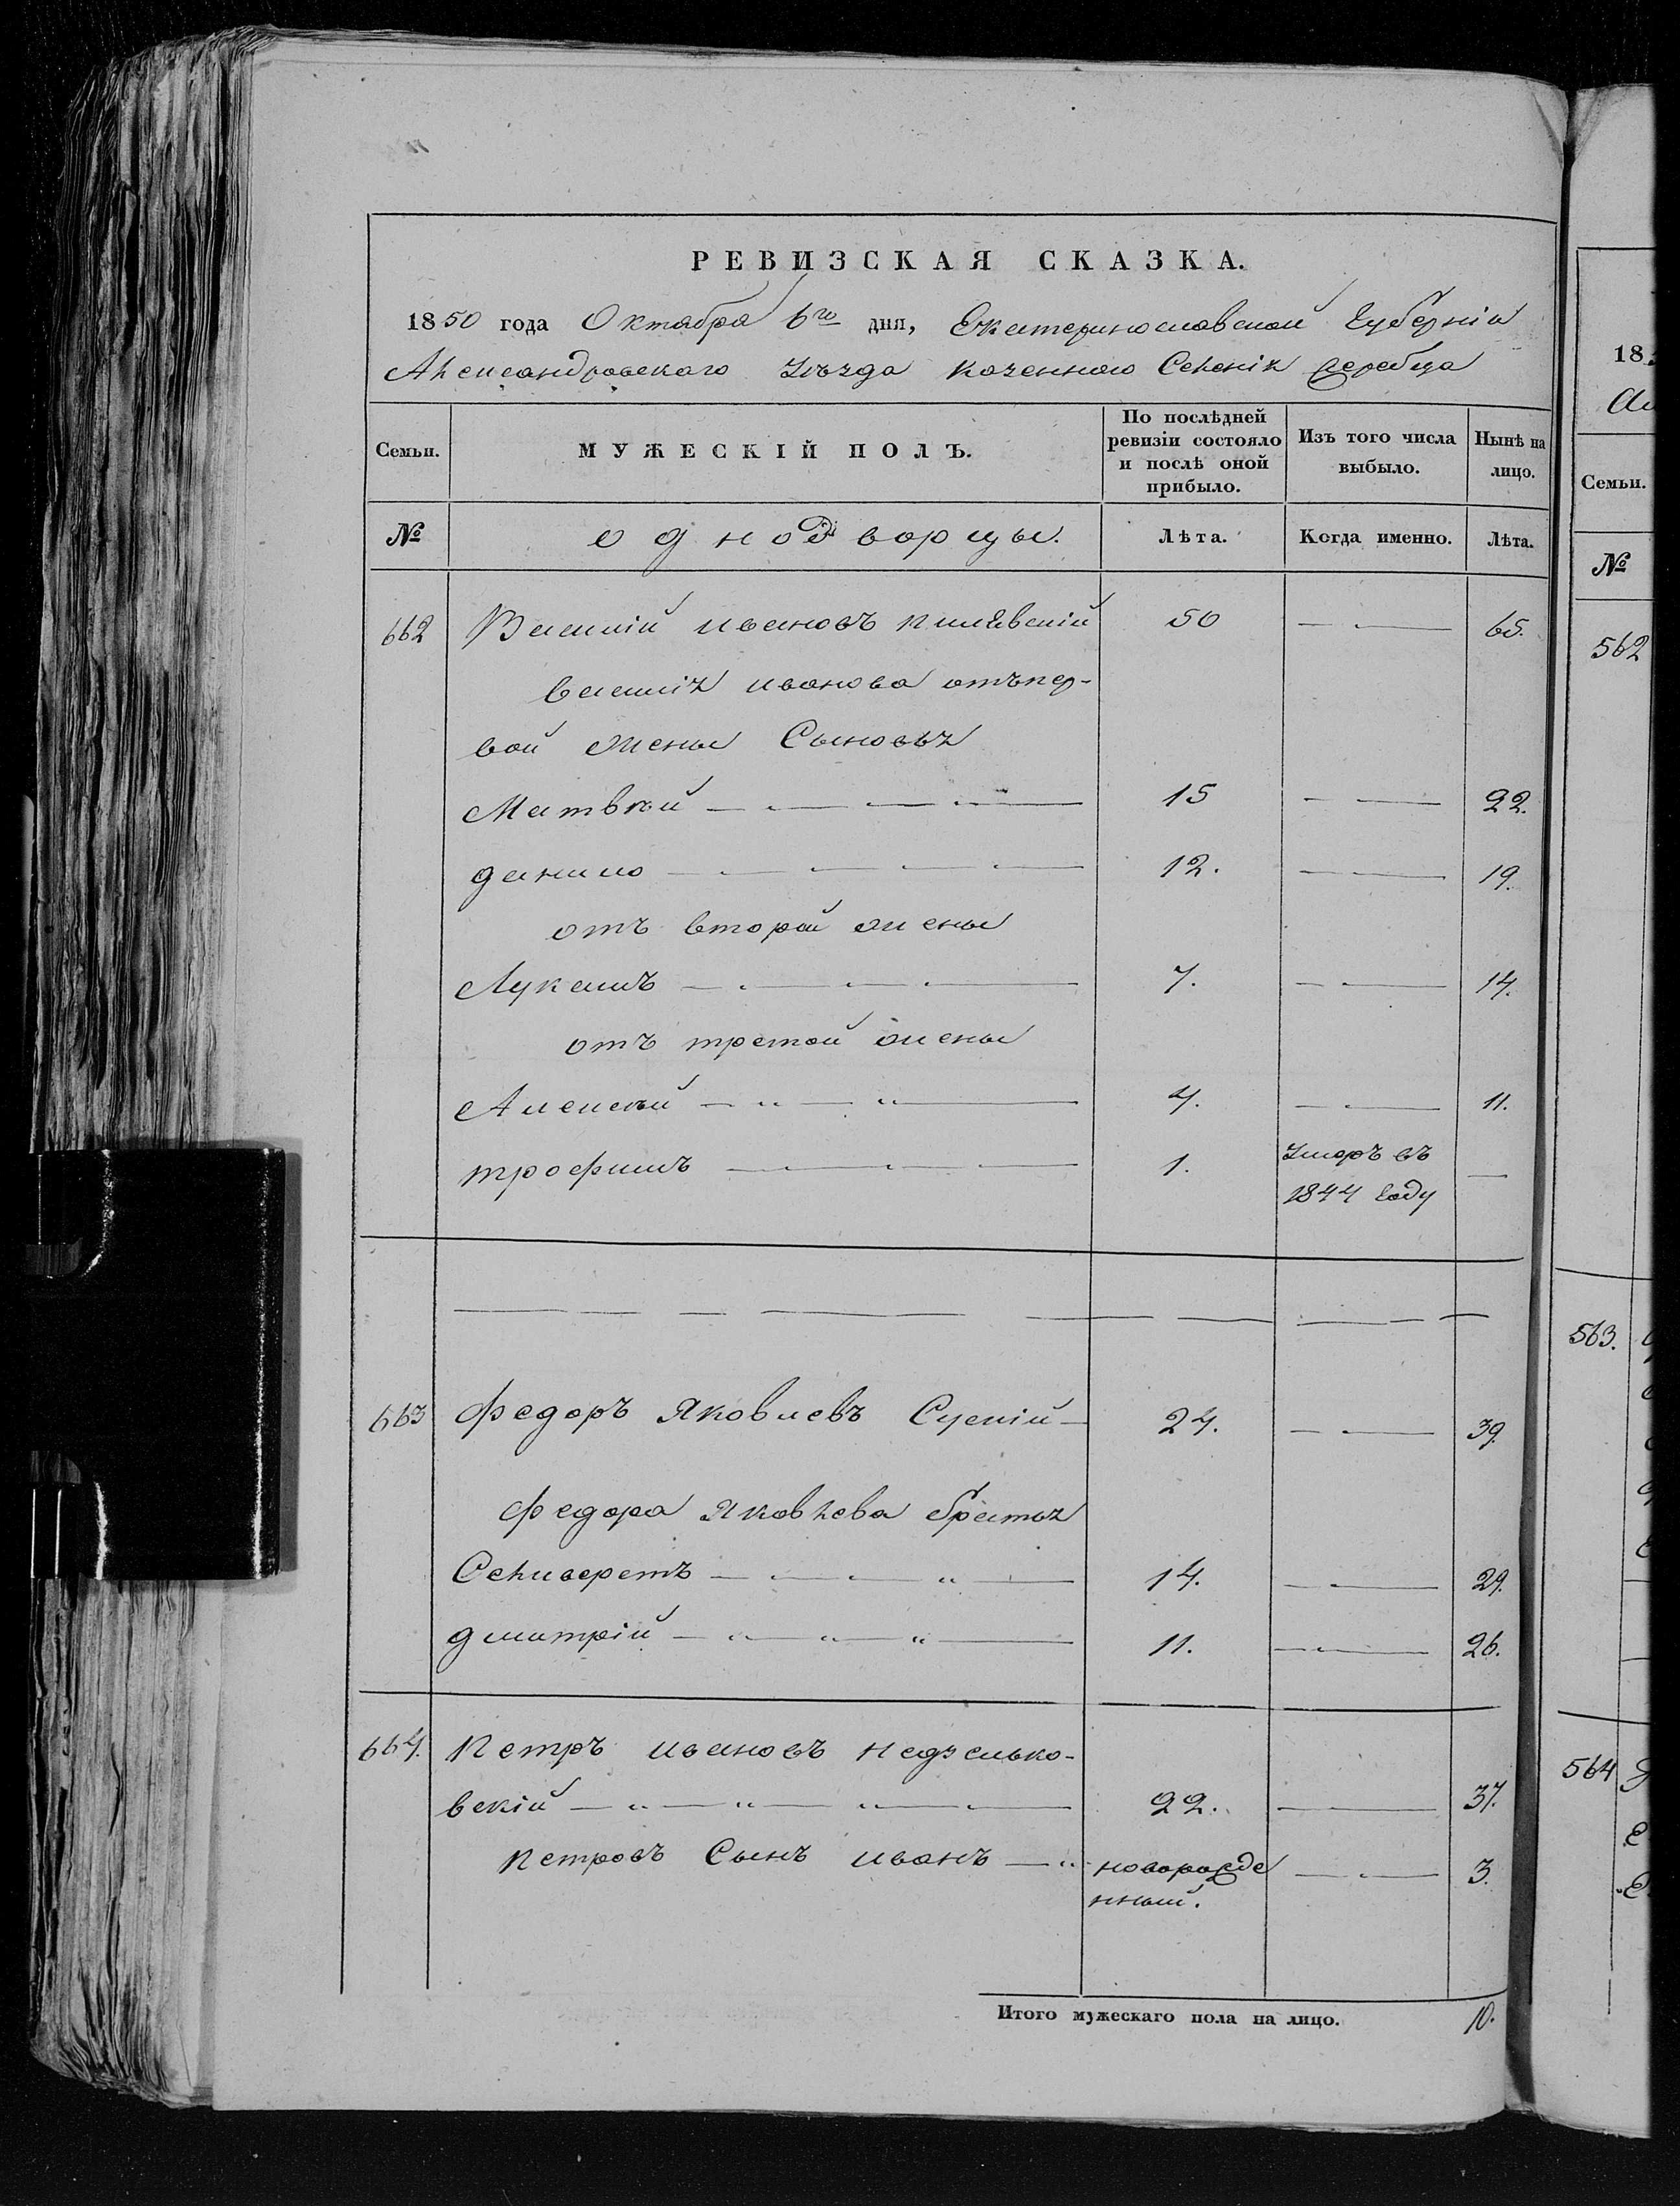 РЕВИЗСКАЯ СКАЗКА.
1850 года Октября 6го дня, Екатеринославской Губерніи
Александровскаго Уѣзда казенного Селенія жеребца
Семьи. МУЖЕСКІЙ ПОЛЪ. По послѣдней ревизіи состояло и послѣ оной прибыло. Изъ того числа выбыло. Нынѣ на лицо.
№ однодворцы. Лѣта. Когда именно. Лѣта.
662 Василій ивановъ 50 65.
василія иванова отъ пер-
вой жены Сыновья
Матвѣй 15 22.
данило 12. 19.
отъ второй жены
Лукашъ 7. 14.
отъ третой жены
Алексѣй 4. 11.
трофимъ 1. Умеръ въ
1844 году
663 федоръ Яковлевъ Сускій 24. 39.
федора Яковлева братья
Селиверстъ 14. 29.
дмитрій 11. 26.
664. Петръ ивановъ недзелько-
вскій 22. 37.
петровъ Сынъ иванъ новорожде 3.
нный.
Итого мужескаго пола на лицо. 10.
18
Семьи.
№
562
563.
564